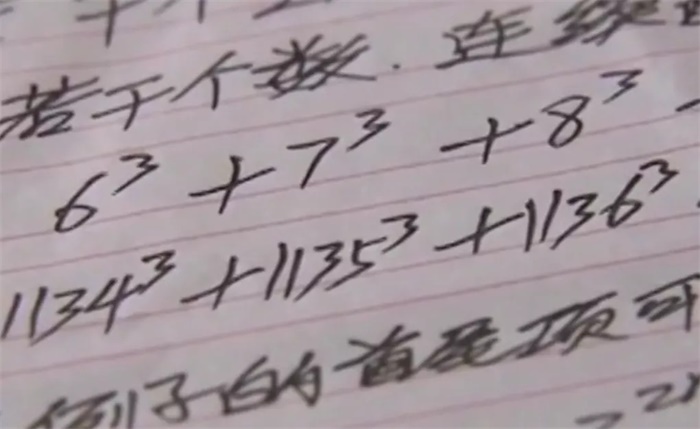 若干个数.连续
6³+7³+8³
1134³+1135³+1136³
例子的首项可